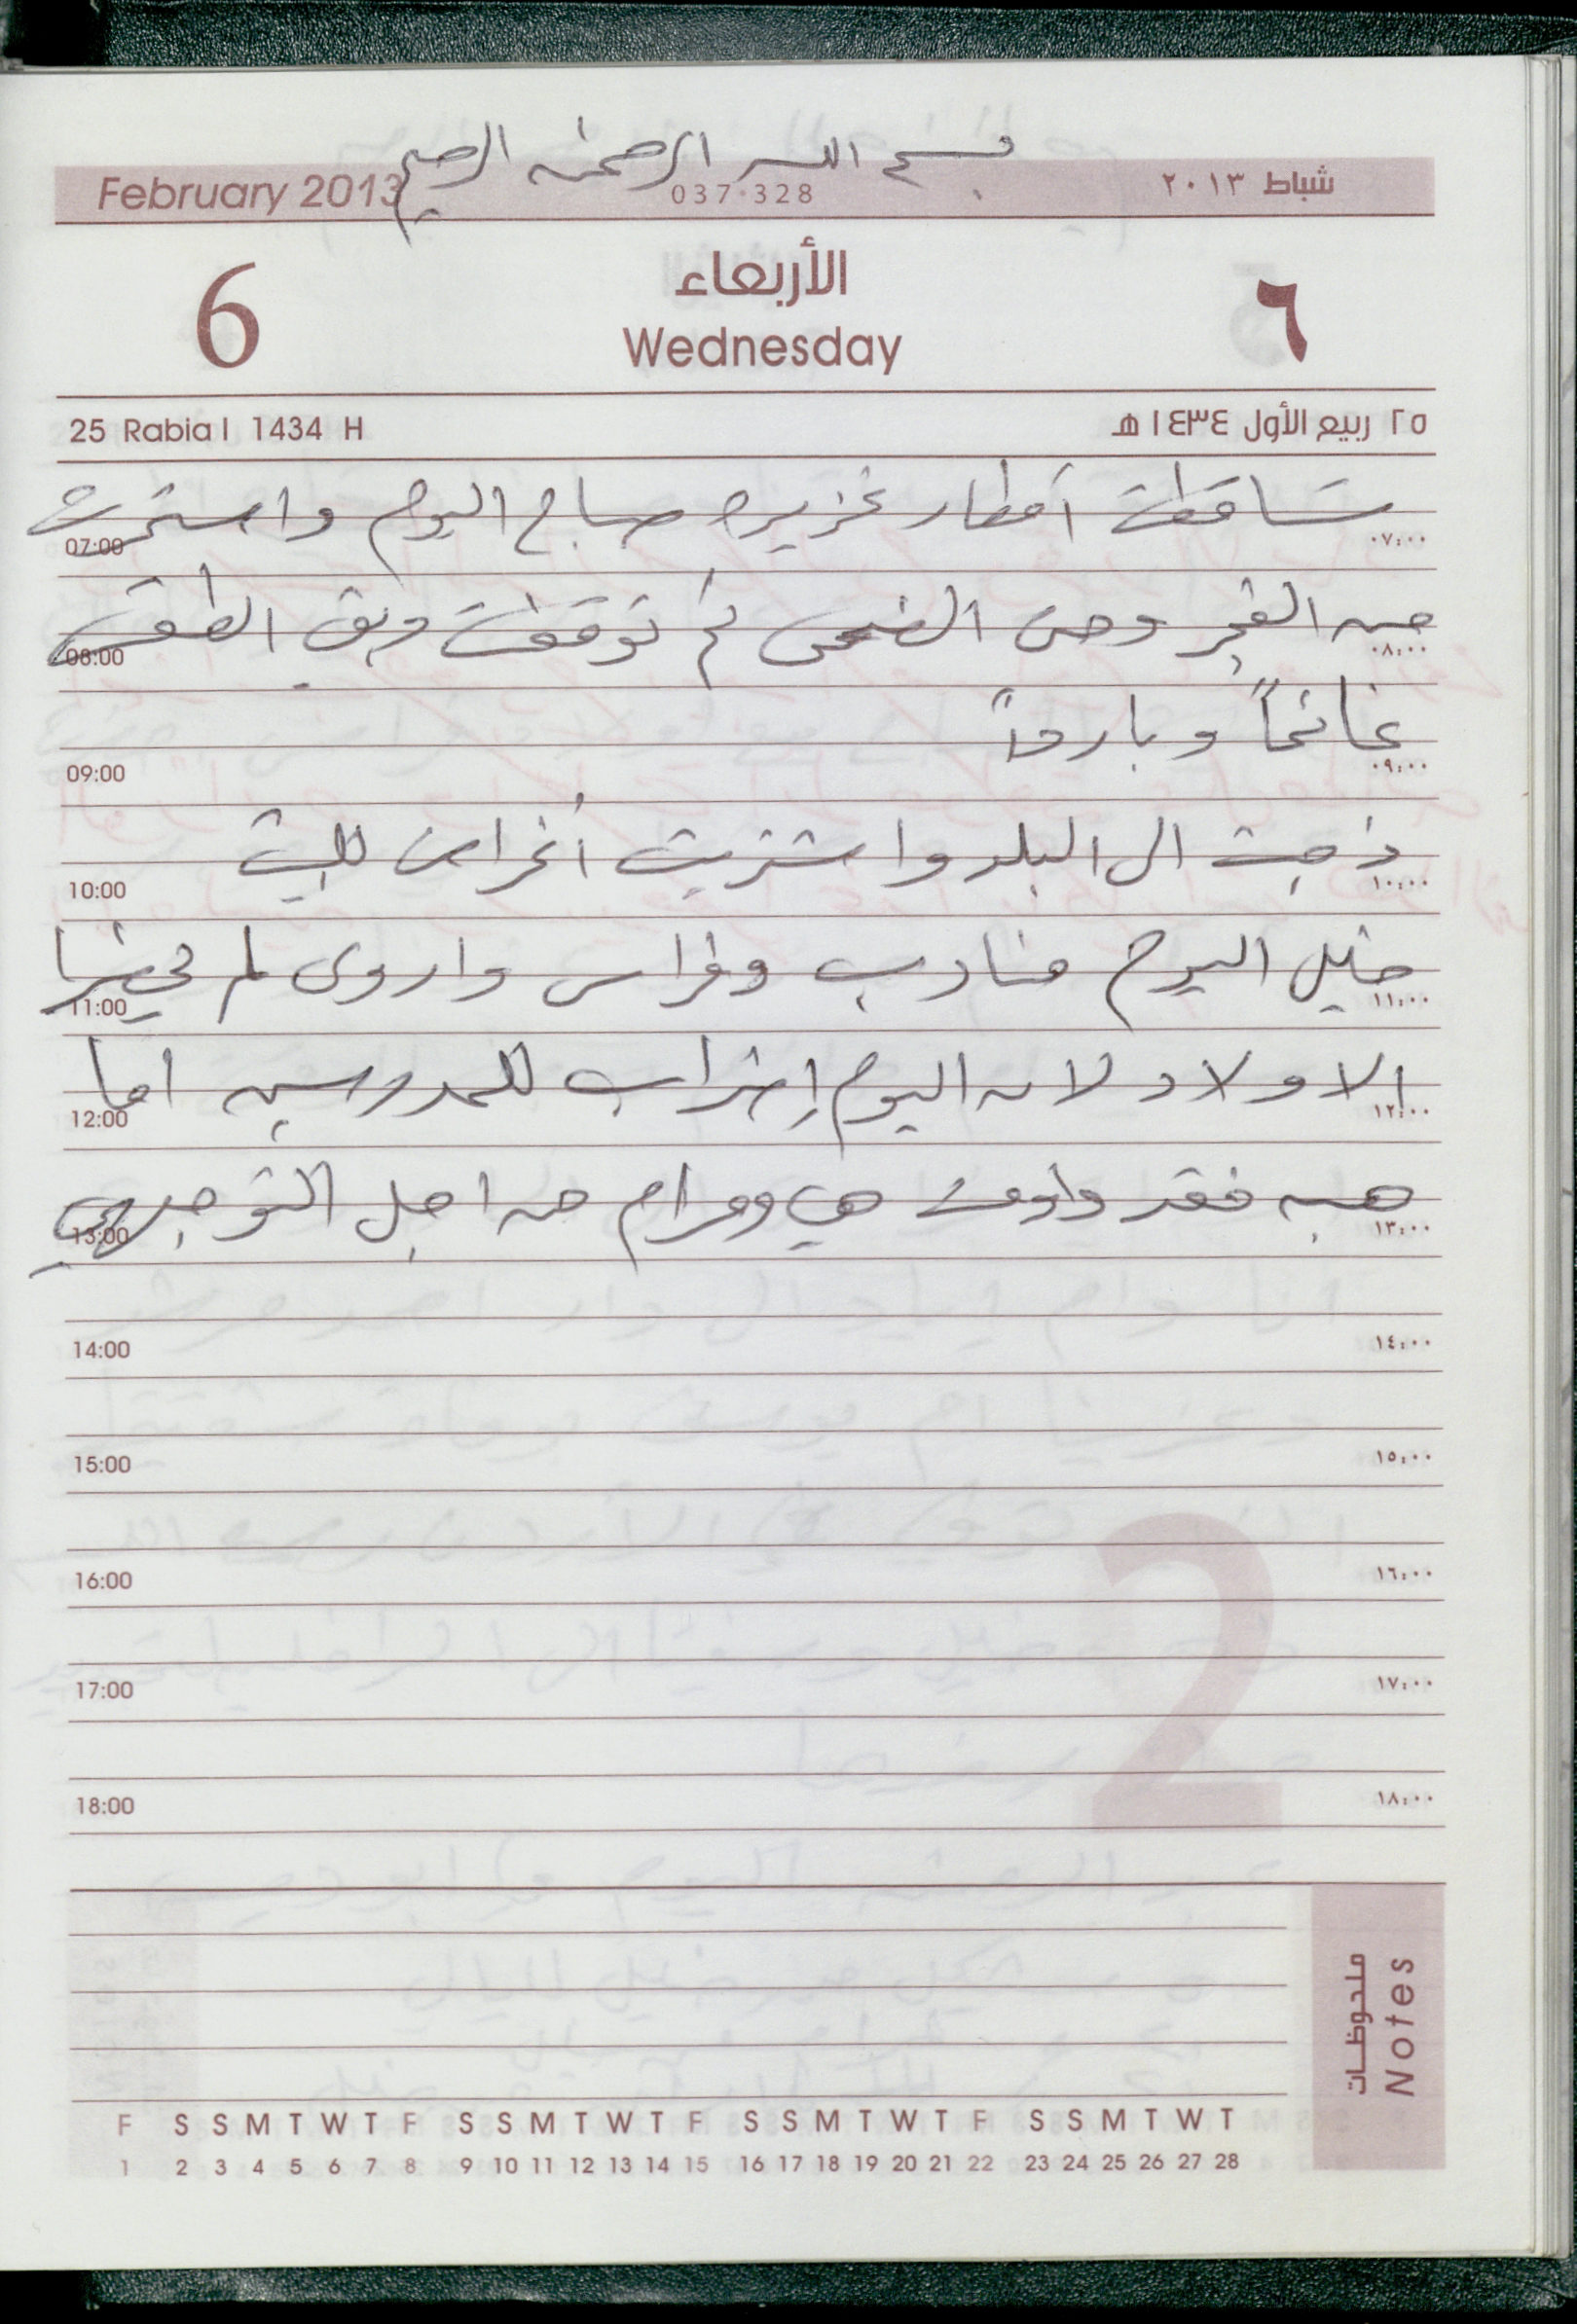 بسم الله الرحمن الرحيم
February 2013 037·328 شباط ٢٠١٣
6 الأربعاء ٦
Wednesday
25 Rabia I 1434 H ٢٥ ربيع الأول ١٤٣٤ هـ
تساقطت أمطار غزيره صباح اليوم واستمرت
07:00 ٠٧:٠٠
من الفجر وحتى الضحى ثم توقفت وبقي الطقس
08:00 ٠٨:٠٠
غائماً وبارداً
09:00 ٠٩:٠٠
ذهبت الى البلد واشتريت أغراض للبيت
10:00 ١٠:٠٠
خليل اليوم مناوب وفراس واروى لم يحضرا
11:00 ١١:٠٠
الاولاد لان اليوم إضراب للمدرسين اما
12:00 ١٢:٠٠
هبه فقد داومت هي ومرام من اجل التوجيهي
13:00 ١٣:٠٠
14:00 ١٤:٠٠
15:00 ١٥:٠٠
16:00 ١٦:٠٠
17:00 ١٧:٠٠
18:00 ١٨:٠٠
2
ملحوظات
Notes
F S S M T W T F S S M T W T F S S M T W T F S S M T W T
1 2 3 4 5 6 7 8 9 10 11 12 13 14 15 16 17 18 19 20 21 22 23 24 25 26 27 28